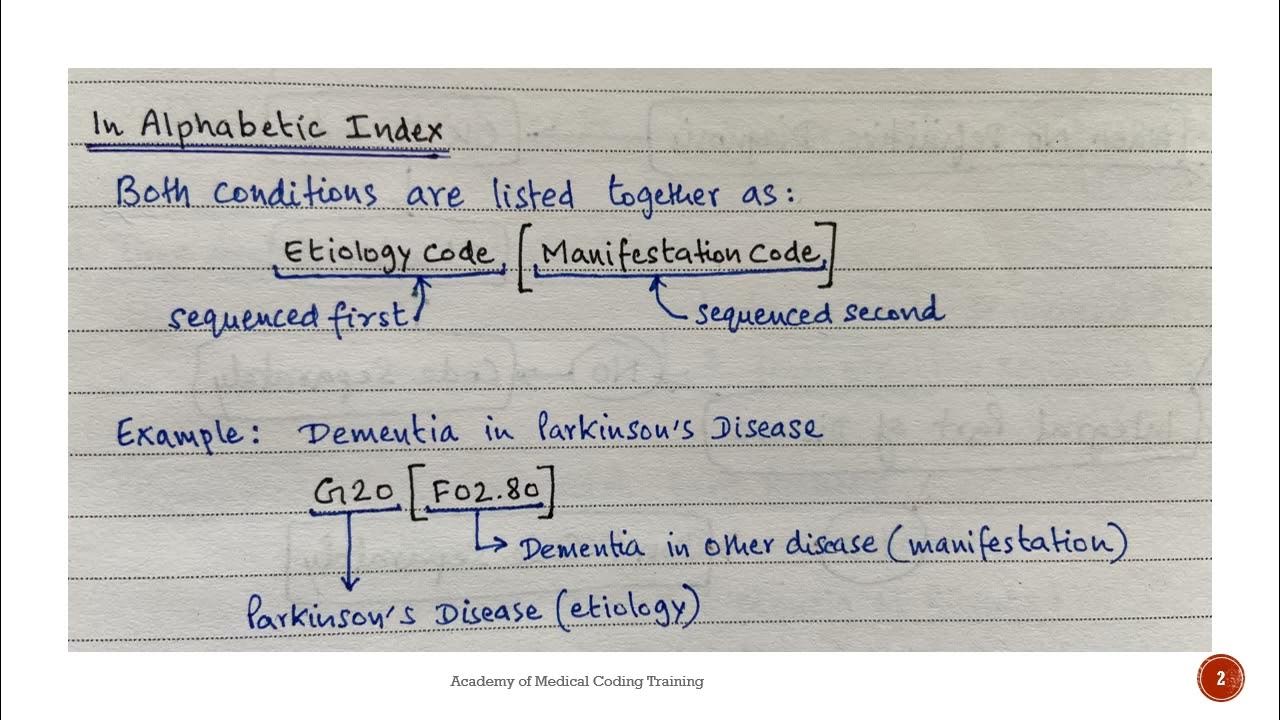 In Alphabetic Index
Both conditions are listed together as:
Etiology Code [Manifestation Code]
sequenced first sequenced second
Example: Dementia in Parkinson's Disease
G20 [F02.80]
Dementia in other disease (manifestation)
Parkinson's Disease (etiology)
Academy of Medical Coding Training
2